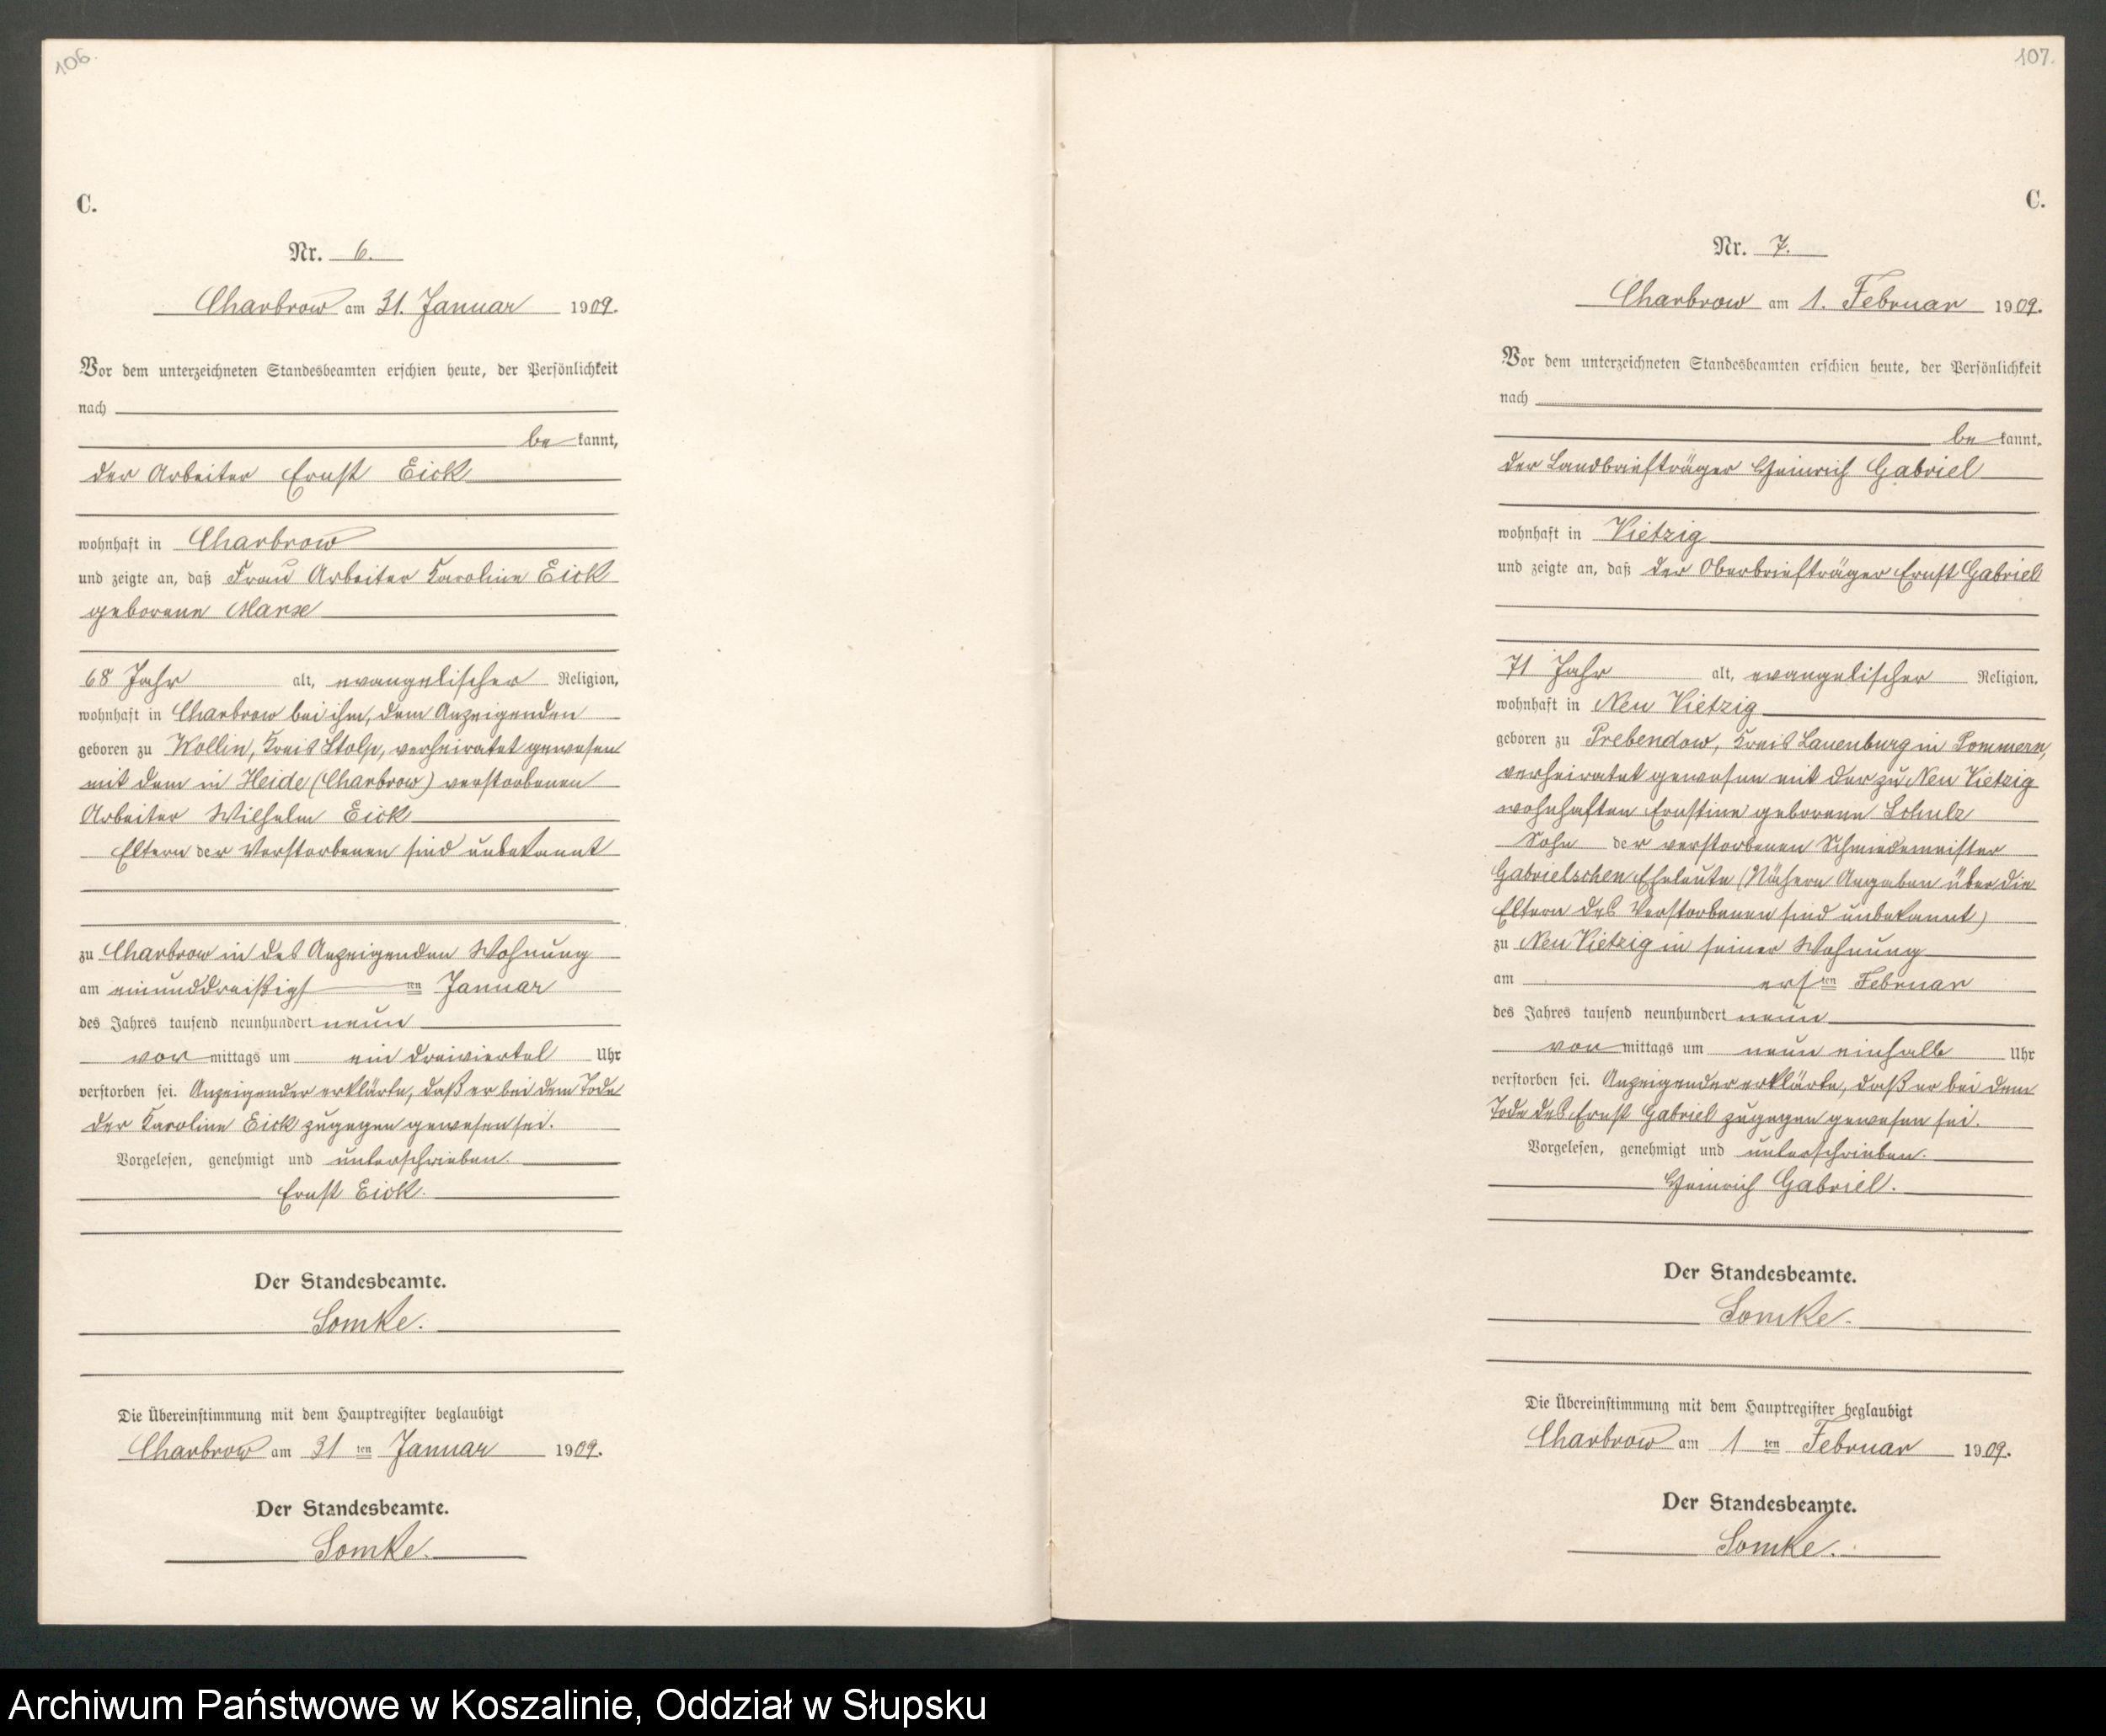 106.
C.
Nr. 6.
Charbrow am 31. Januar 1909.
Vor dem unterzeichneten Standesbeamten erschien heute, der Persönlichkeit
nach
be kannt,
der Arbeiter Ernst Eick
wohnhaft in Charbrow
und zeigte an, daß Frau Arbeiter Karoline Eick
geborene Marx
68 Jahr alt, evangelischer Religion,
wohnhaft in Charbrow bei ihm, dem Anzeigenden
geboren zu Wollin, Kreis Stolp, verheiratet gewesen
mit dem in Heide (Charbrow) verstorbenen
Arbeiter Wilhelm Eick
Eltern der Verstorbenen sind unbekannt
zu Charbrow in des Anzeigenden Wohnung
am einunddreißigs ten Januar
des Jahres tausend neunhundert neun
vor mittags um ein dreiviertel Uhr
verstorben sei. Anzeigender erklärte, daß er bei dem Tode
der Karoline Eick zugegen gewesen sei.
Vorgelesen, genehmigt und unterschrieben.
Ernst Eick.
Der Standesbeamte.
Somke.
Die Übereinstimmung mit dem Hauptregister beglaubigt
Charbrow am 31 ten Januar 1909.
Der Standesbeamte.
Somke.
107.
C.
Nr. 7.
Charbrow am 1. Februar 1909.
Vor dem unterzeichneten Standesbeamten erschien heute, der Persönlichkeit
nach
be kannt,
der Landbriefträger Heinrich Gabriel
wohnhaft in Vietzig
und zeigte an, daß der Oberbriefträger Ernst Gabriel
71 Jahr alt, evangelischer Religion,
wohnhaft in Neu Vietzig
geboren zu Prebendow, Kreis Lauenburg in Pommern,
verheiratet gewesen mit der zu Neu Vietzig
wohnhaften Ernstine geborene Schulz
Sohn der verstorbenen Schmiedemeister
Gabrielschen Eheleute (Nähere Angaben über die
Eltern des Verstorbenen sind unbekannt)
zu Neu Vietzig in seiner Wohnung
am ers ten Februar
des Jahres tausend neunhundert neun
vor mittags um neun einhalb Uhr
verstorben sei. Anzeigender erklärte, daß er bei dem
Tode des Ernst Gabriel zugegen gewesen sei.
Vorgelesen, genehmigt und unterschrieben.
Heinrich Gabriel.
Der Standesbeamte.
Somke.
Die Übereinstimmung mit dem Hauptregister beglaubigt
Charbrow am 1 ten Februar 1909.
Der Standesbeamte.
Somke.
Archiwum Państwowe w Koszalinie, Oddział w Słupsku